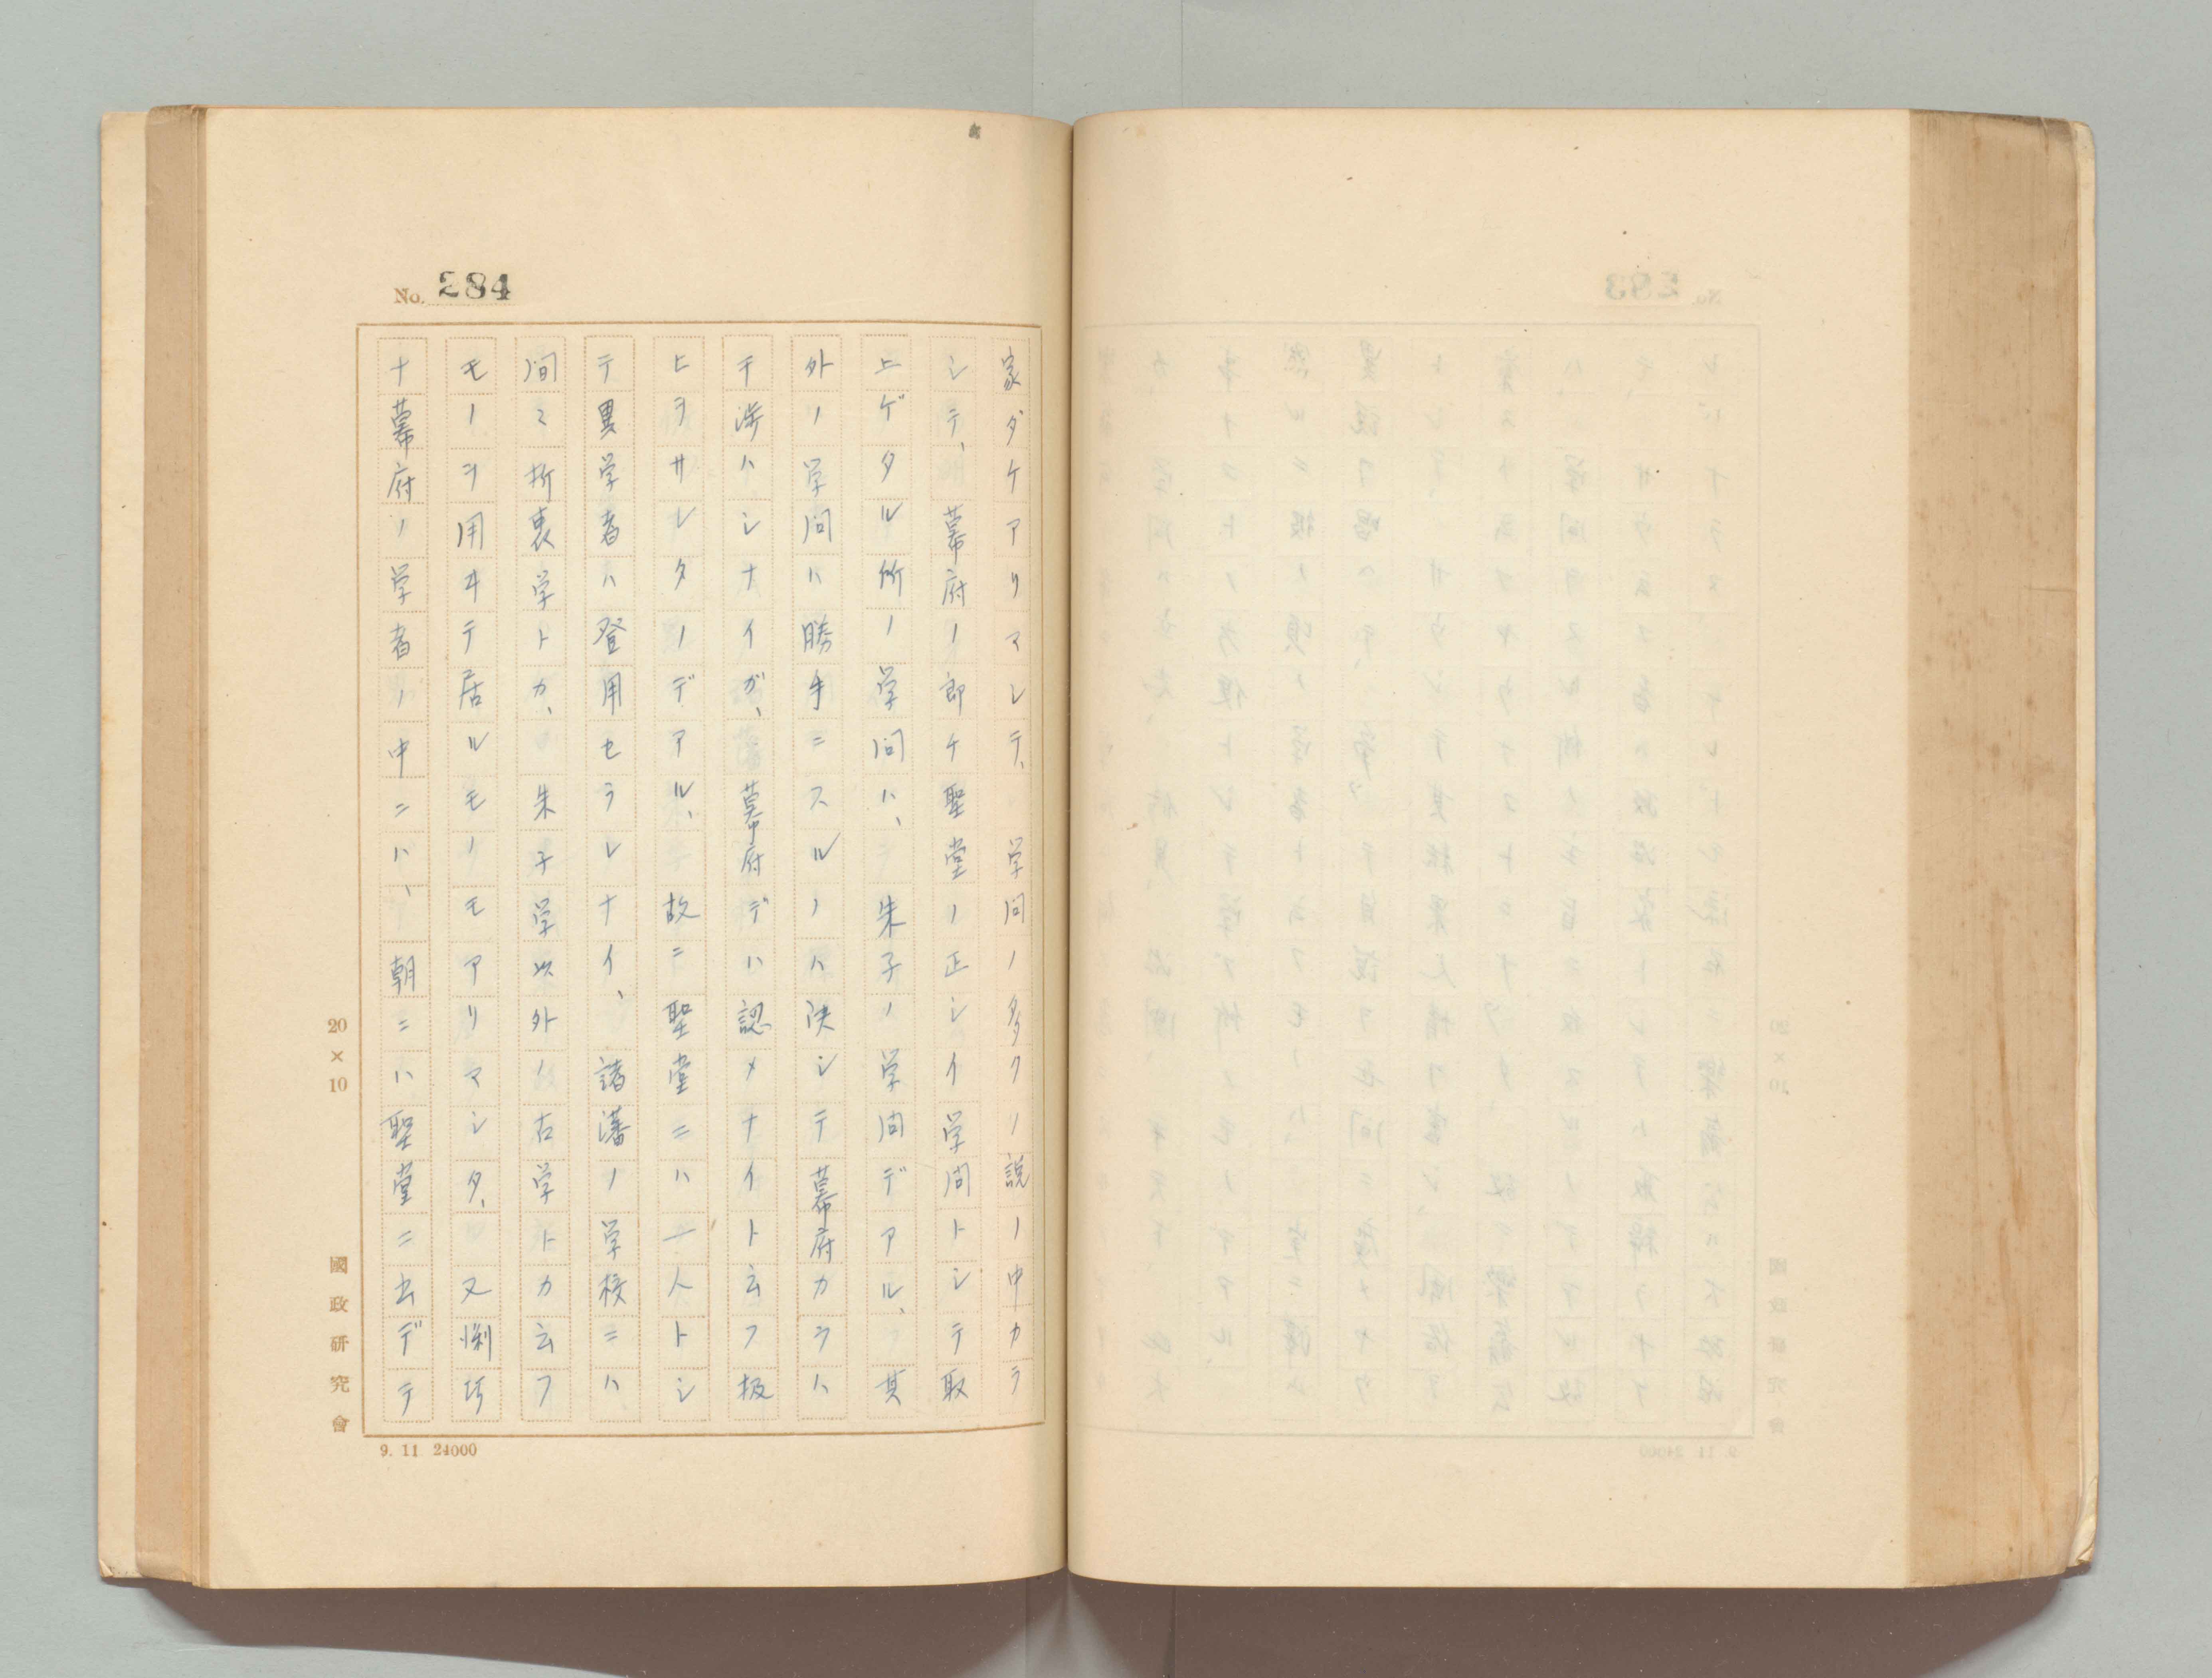 No. 284
家ダケアリマシテ、学問ノ多クノ説ノ中カラ
シテ、幕府ノ即チ聖堂ノ正シイ学問トシテ取
上ゲタル所ノ学問ハ、朱子ノ学問デアル、其
外ノ学問ハ勝手ニスルノハ決シテ幕府カラハ
干渉ハシナイガ、幕府デハ認メナイト云フ扱
ヒヲサレタノデアル、故ニ聖堂ニハ一人トシ
テ異学者ハ登用セラレナイ、諸藩ノ学校ニハ
間々折衷学トカ、朱子学以外ノ古学トカ云フ
モノヲ用ヰテ居ルモノモアリマシタ、又悧巧
ナ幕府ノ学者ノ中ニハ、朝ニハ聖堂ニ出デテ
20×10
國政研究會
9. 11 24000